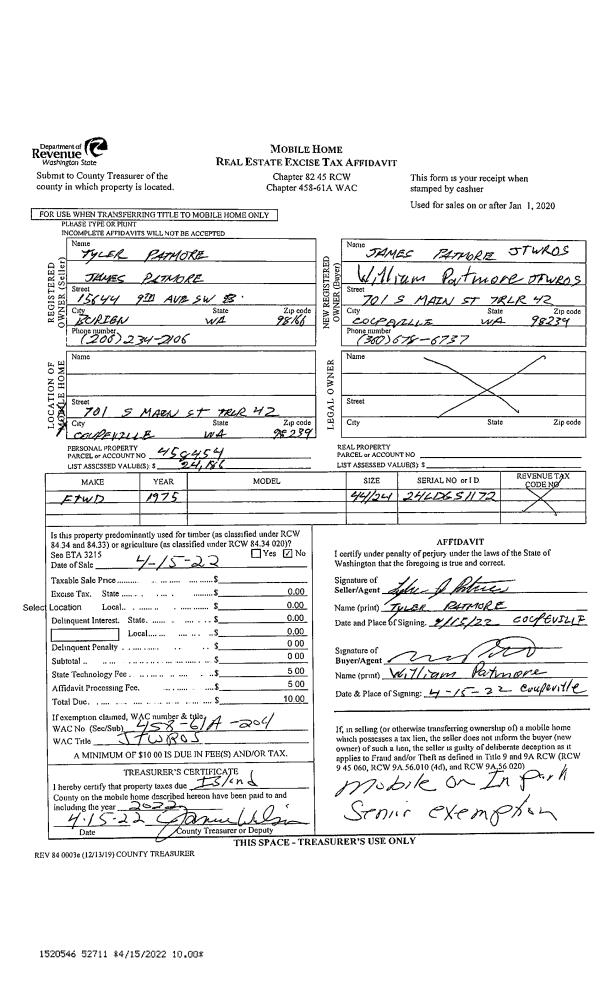 Department of
Revenue
Washington State
Submit to County Treasurer of the
county in which property is located.
MOBILE HOME
REAL ESTATE EXCISE TAX AFFIDAVIT
Chapter 82 45 RCW
Chapter 458-61A WAC
This form is your receipt when
stamped by cashier
Used for sales on or after Jan 1, 2020
FOR USE WHEN TRANSFERRING TITLE TO MOBILE HOME ONLY
PLEASE TYPE OR PRINT
INCOMPLETE AFFIDAVITS WILL NOT BE ACCEPTED
REGISTERED
OWNER (Seller)
Name
TYLER PATMORE
JAMES PATMORE
Street
15644 9TH AVE SW B
City State Zip code
BURIEN WA 98166
Phone number
(206) 234-2106
NEW REGISTERED
OWNER (Buyer)
Name
JAMES PATMORE JTWROS
William Patmore JTWROS
Street
701 S MAIN ST TRLR 42
City State Zip code
COUPEVILLE WA 98239
Phone number
(360) 678-6737
LOCATION OF
MOBILE HOME
Name
Street
701 S MAIN ST TRLR 42
City State Zip code
COUPEVILLE WA 98239
LEGAL OWNER
Name
Street
City State Zip code
PERSONAL PROPERTY
PARCEL or ACCOUNT NO 458454
LIST ASSESSED VALUE(S) $ 24,186
REAL PROPERTY
PARCEL or ACCOUNT NO
LIST ASSESSED VALUE(S) $
MAKE YEAR MODEL SIZE SERIAL NO or I D REVENUE TAX
CODE NO
FTWD 1975 44/24 24LDGS1172
Is this property predominantly used for timber (as classified under RCW
84.34 and 84.33) or agriculture (as classified under RCW 84.34 020)?
See ETA 3215 Yes ✓ No
Date of Sale 4-15-22
Taxable Sale Price $
Excise Tax. State $ 0.00
Select Location Local $ 0.00
Delinquent Interest. State $ 0.00
Local $ 0.00
Delinquent Penalty $ 0.00
Subtotal $ 0 00
State Technology Fee $ 5 00
Affidavit Processing Fee $ 5.00
Total Due $ 10.00
If exemption claimed, WAC number & title
WAC No (Sec/Sub) 458-61A-204
WAC Title JTWROS
A MINIMUM OF $10 00 IS DUE IN FEE(S) AND/OR TAX.
TREASURER'S CERTIFICATE
I hereby certify that property taxes due Island
County on the mobile home described hereon have been paid to and
including the year 2022
4-15-22
Date County Treasurer or Deputy
AFFIDAVIT
I certify under penalty of perjury under the laws of the State of
Washington that the foregoing is true and correct.
Signature of
Seller/Agent
Name (print) TYLER PATMORE
Date and Place of Signing. 4/15/22 COUPEVILLE
Signature of
Buyer/Agent
Name (print) William Patmore
Date & Place of Signing: 4-15-22 Coupeville
If, in selling (or otherwise transferring ownership of) a mobile home
which possesses a tax lien, the seller does not inform the buyer (new
owner) of such a lien, the seller is guilty of deliberate deception as it
applies to Fraud and/or Theft as defined in Title 9 and 9A RCW (RCW
9 45 060, RCW 9A.56.010 (4d), and RCW 9A.56 020)
Mobile on In park
Senior exemption
THIS SPACE - TREASURER'S USE ONLY
REV 84 0003e (12/13/19) COUNTY TREASURER
1520546 52711 $4/15/2022 10.00*